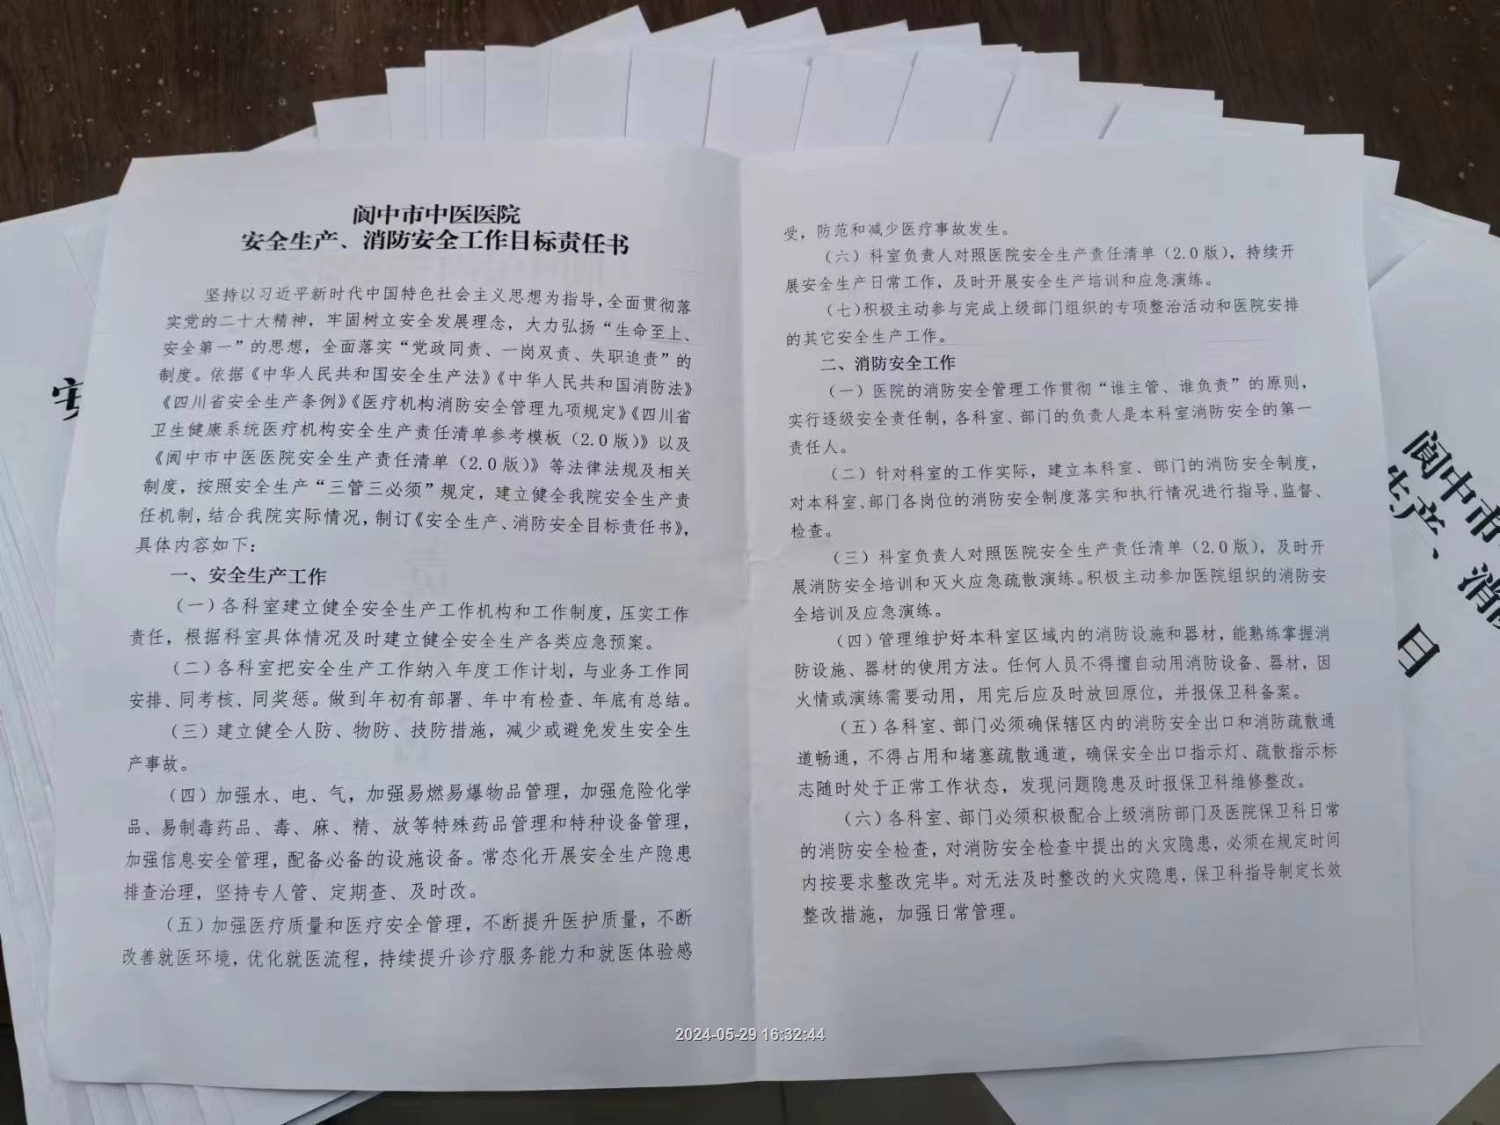 阆中市中医医院
安全生产、消防安全工作目标责任书
坚持以习近平新时代中国特色社会主义思想为指导，全面贯彻落
实党的二十大精神，牢固树立安全发展理念，大力弘扬“生命至上、
安全第一”的思想，全面落实“党政同责、一岗双责、失职追责”的
制度。依据《中华人民共和国安全生产法》《中华人民共和国消防法》
《四川省安全生产条例》《医疗机构消防安全管理九项规定》《四川省
卫生健康系统医疗机构安全生产责任清单参考模板（2.0版）》以及
《阆中市中医医院安全生产责任清单（2.0版）》等法律法规及相关
制度，按照安全生产“三管三必须”规定，建立健全我院安全生产责
任机制，结合我院实际情况，制订《安全生产、消防安全目标责任书》，
具体内容如下：
一、安全生产工作
（一）各科室建立健全安全生产工作机构和工作制度，压实工作
责任，根据科室具体情况及时建立健全安全生产各类应急预案。
（二）各科室把安全生产工作纳入年度工作计划，与业务工作同
安排、同考核、同奖惩。做到年初有部署、年中有检查、年底有总结。
（三）建立健全人防、物防、技防措施，减少或避免发生安全生
产事故。
（四）加强水、电、气，加强易燃易爆物品管理，加强危险化学
品、易制毒药品、毒、麻、精、放等特殊药品管理和特种设备管理，
加强信息安全管理，配备必备的设施设备。常态化开展安全生产隐患
排查治理，坚持专人管、定期查、及时改。
（五）加强医疗质量和医疗安全管理，不断提升医护质量，不断
改善就医环境，优化就医流程，持续提升诊疗服务能力和就医体验感
受，防范和减少医疗事故发生。
（六）科室负责人对照医院安全生产责任清单（2.0版），持续开
展安全生产日常工作，及时开展安全生产培训和应急演练。
（七）积极主动参与完成上级部门组织的专项整治活动和医院安排
的其它安全生产工作。
二、消防安全工作
（一）医院的消防安全管理工作贯彻“谁主管、谁负责”的原则，
实行逐级安全责任制，各科室、部门的负责人是本科室消防安全的第一
责任人。
（二）针对科室的工作实际，建立本科室、部门的消防安全制度，
对本科室、部门各岗位的消防安全制度落实和执行情况进行指导、监督、
检查。
（三）科室负责人对照医院安全生产责任清单（2.0版），及时开
展消防安全培训和灭火应急疏散演练。积极主动参加医院组织的消防安
全培训及应急演练。
（四）管理维护好本科室区域内的消防设施和器材，能熟练掌握消
防设施、器材的使用方法。任何人员不得擅自动用消防设备、器材，因
火情或演练需要动用，用完后应及时放回原位，并报保卫科备案。
（五）各科室、部门必须确保辖区内的消防安全出口和消防疏散通
道畅通，不得占用和堵塞疏散通道，确保安全出口指示灯、疏散指示标
志随时处于正常工作状态，发现问题隐患及时报保卫科维修整改。
（六）各科室、部门必须积极配合上级消防部门及医院保卫科日常
的消防安全检查，对消防安全检查中提出的火灾隐患，必须在规定时间
内按要求整改完毕。对无法及时整改的火灾隐患，保卫科指导制定长效
整改措施，加强日常管理。
安
阆中市
生产、消防
目
2024-05-29 16:32:44